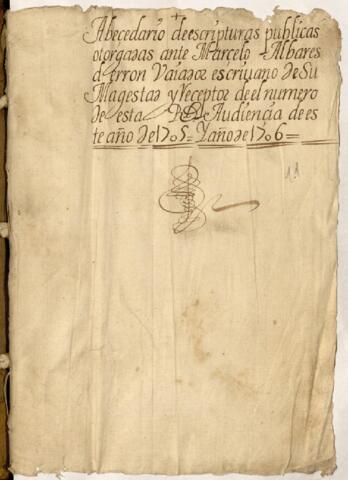 +
Abecedario de escripturas publicas
otorgadas ante Marcelo Albares
d erron Vaiador escriuano de Su
Magestad y receptor de el numero
de esta Rl Audiencia de es
te año de 1705= Y año de 1706=
11